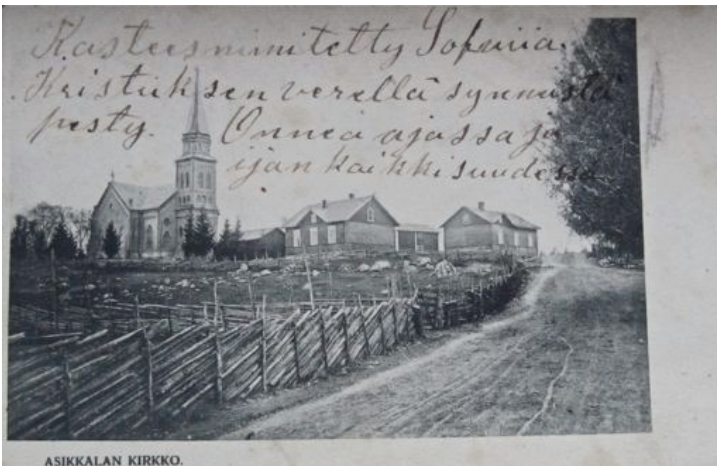 Kasteesnimitetty Sofiiia.
Kristuksen verellä synnistä
pesty. Onnea ajassa ja
ijankaikkisuudessa
ASIKKALAN KIRKKO.